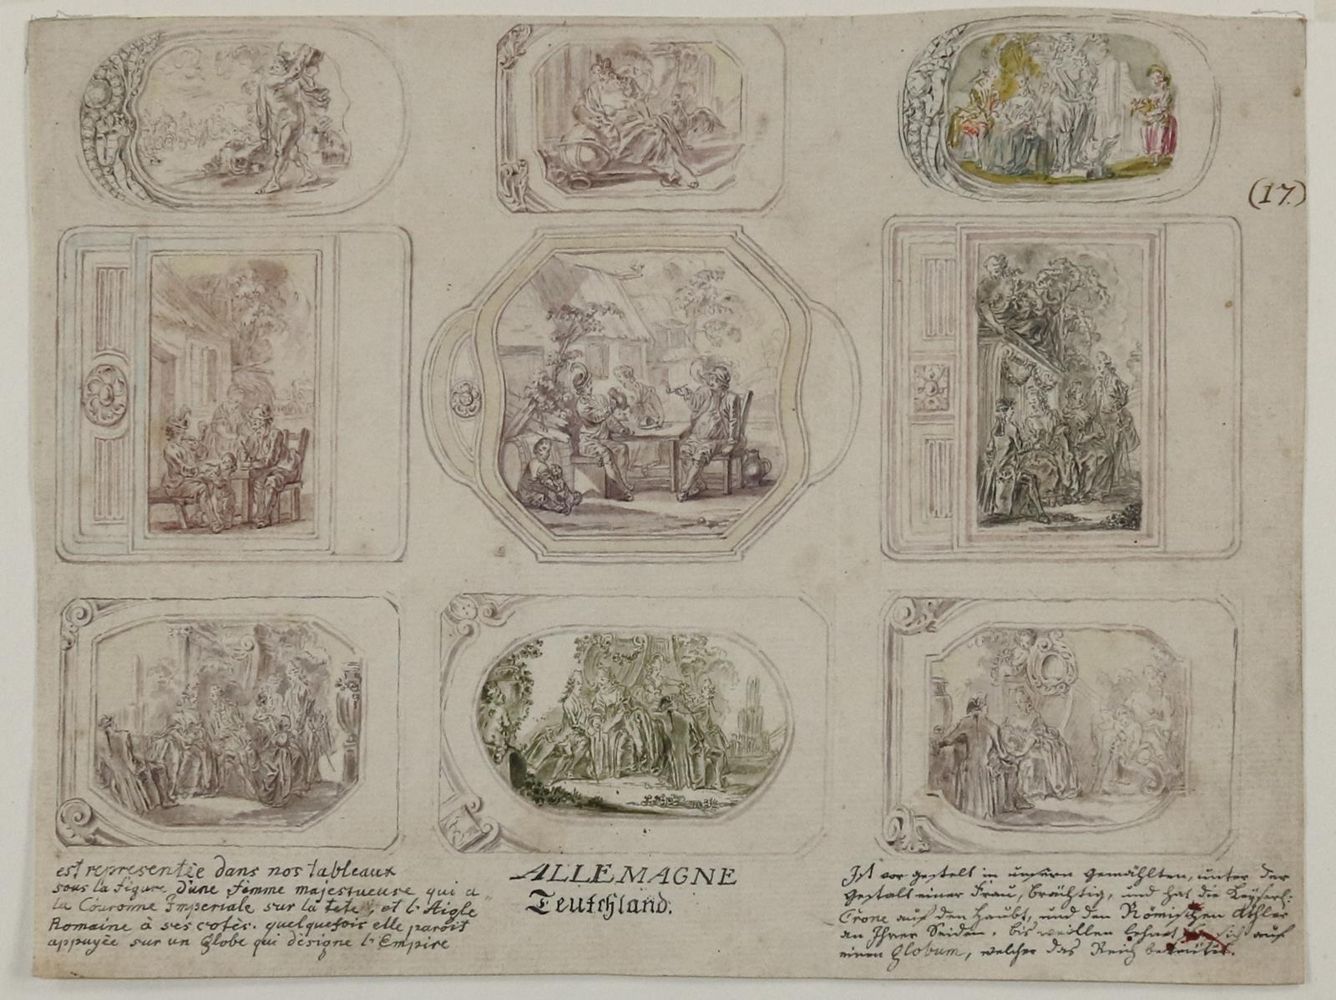 (17.)
est representée dans nos tableaux
sous la figure d'une femme majestueuse qui a
la Couronne Imperiale sur la tete, et l'Aigle
Romaine à ses cotés. quelquefois elle paroit
appuyée sur un Globe qui désigne l'Empire
ALLEMAGNE
Teutschland.
Ist vor gestelt in unsern gemählten, unter der
gestalt einer Frau, brächtig, und hat die Keyserl:
Crone auf den Haubt, und den Römischen Athler
an Ihrer Seiden, bis weillen lehnet sich auf
einen Globum, welcher das Reich bedeutet.